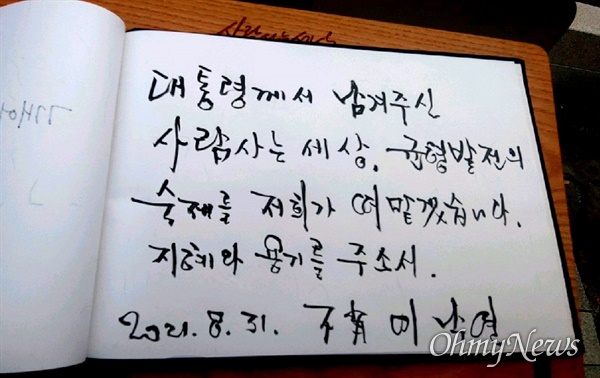 대통령께서 남겨주신
사람사는 세상. 균형발전의
숙제를 저희가 떠맡겠습니다.
지혜와 용기를 주소서.
2021. 8. 31. 不肖 이 남열
OhmyNews